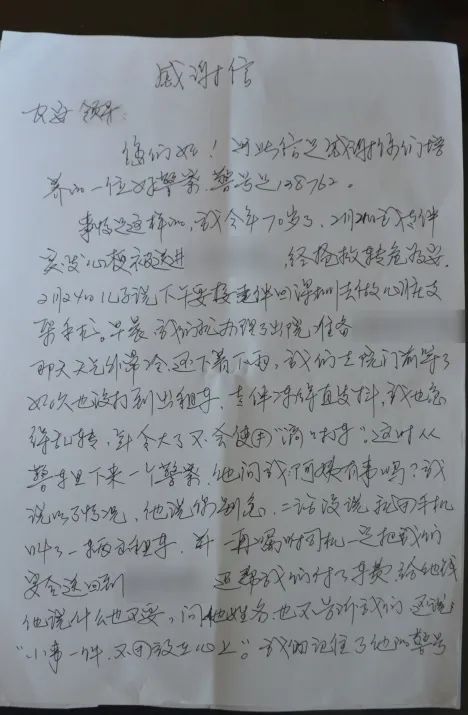 感谢信
公安领导:
您们好!写此信是感谢你们培
养的一位好警察,警号是128762。
事情是这样的,我今年70岁了,2月21日我老伴
突发心梗被送进 经抢救转危为安。
2月24日儿子说下午要接老伴回深圳去做心脏支
架手术。早晨我们就办理了出院准备
那天天气非常冷,还下着小雨,我们去院门前等了
好久也没打到出租车,老伴冻得直发抖,我也急
得乱转,年令大了又不会使用“滴滴打车”。这时从
警车里下来一个警察,他问我阿姨有事吗?我
说以了情况,他说你别急,二话没说就用手机
叫了一辆出租车,并一再嘱咐司机一定把我们
安全送回到 还帮我们付了车费,给他钱
他说什么也不要,问他姓名,也不告诉我们,还说:
“小事一件,不用放在心上”。我们记住了他的警号